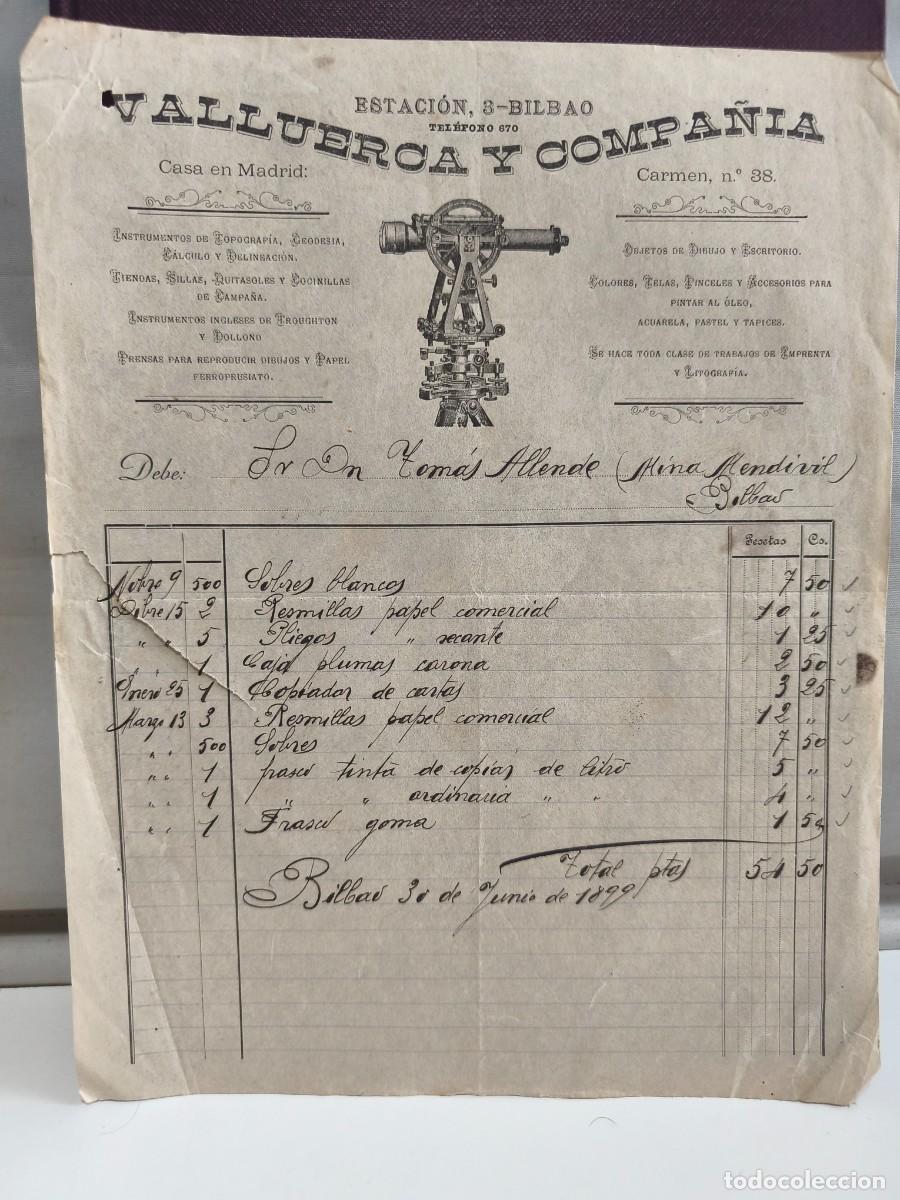 ESTACIÓN, 3-BILBAO
TELÉFONO 670
VALLUERCA Y COMPAÑIA
Casa en Madrid:
Carmen, n.º 38.
Instrumentos de Topografía, Geodesia,
Cálculo y Delineación.
Tiendas, Sillas, Quitasoles y Cocinillas
de Campaña.
Instrumentos ingleses de Troughton
y Dollond
Prensas para reproducir dibujos y Papel
ferroprusiato.
Objetos de Dibujo y Escritorio.
Colores, Telas, Pinceles y Accesorios para
pintar al óleo,
acuarela, pastel y tapices.
Se hace toda clase de trabajos de Imprenta
y Litografía.
Debe: Sr Dn Tomás Allende (Mina Mendivil)
Bilbao
Pesetas Cs.
Nobre 9 500 Sobres blancos 7 50
Dibre 15 2 Resmillas papel comercial 10 "
" " 5 Pliegos " secante 1 25
" " 1 Caja plumas corona 2 50
Enero 25 1 Copiador de cartas 3 25
Marzo 13 3 Resmillas papel comercial 12 "
" " 500 Sobres 7 50
" " 1 frasco tinta de copiar de litro 5 "
" " 1 " " ordinaria " " 4 "
" " 1 Frasco goma 1 50
Total ptas 54 50
Bilbao 30 de Junio de 1899
todocoleccion